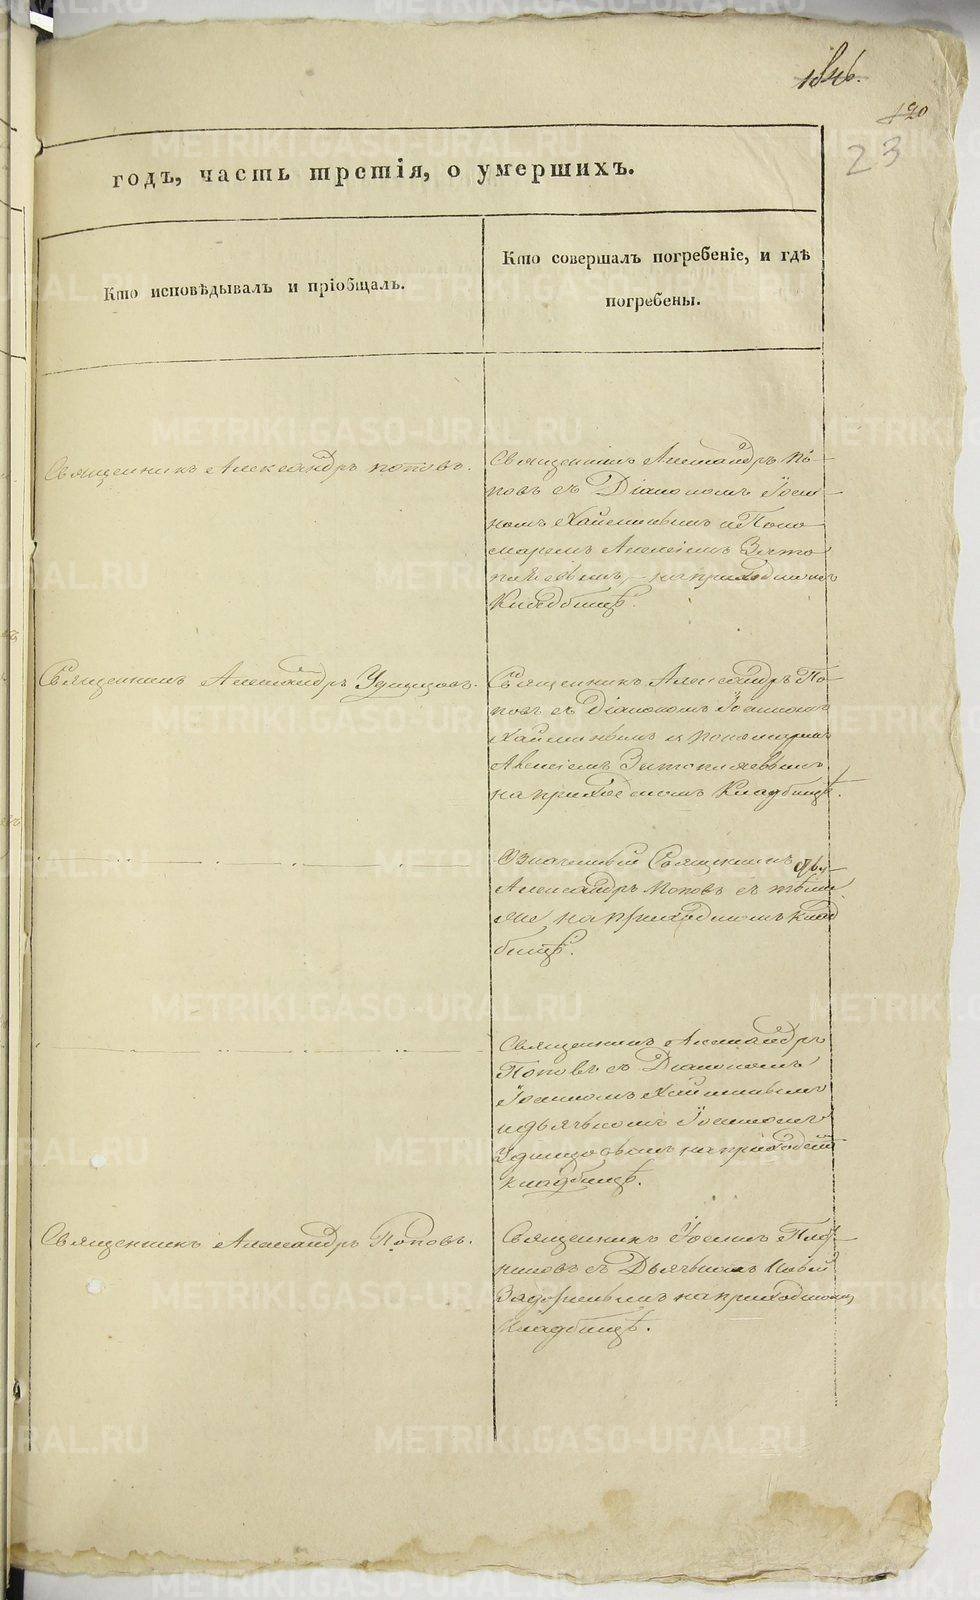 1846.
120
23
годъ, часть третія, о умершихъ.
Кто исповѣдывалъ и пріобщалъ.
Кто совершалъ погребеніе, и гдѣ
погребены.
Священникъ Александръ Поповъ.
Священникъ Александръ По-
повъ съ Діакономъ Іоан-
номъ и Поно-
маремъ Алексіемъ
на приходскомъ
Кладбищѣ.
Священникъ Александръ Удинцовъ.
Священникъ Александръ По-
повъ съ Діакономъ Іоанномъ
и пономаремъ
Алексіемъ
на приходскомъ Кладбищѣ.
Означенный Священникъ
Александръ Поповъ съ тѣми
же на приходскомъ клад
бищѣ.
Священникъ Александръ
Поповъ съ Діакономъ
Іоанномъ
и дьячкомъ Іоанномъ
Удинцовымъ на приходскомъ
кладбищѣ.
Священникъ Александръ Поповъ.
Священникъ Іоаннъ
съ Дьячкомъ
на приходскомъ
Кладбищѣ.
METRIKI.GASO-URAL.RU